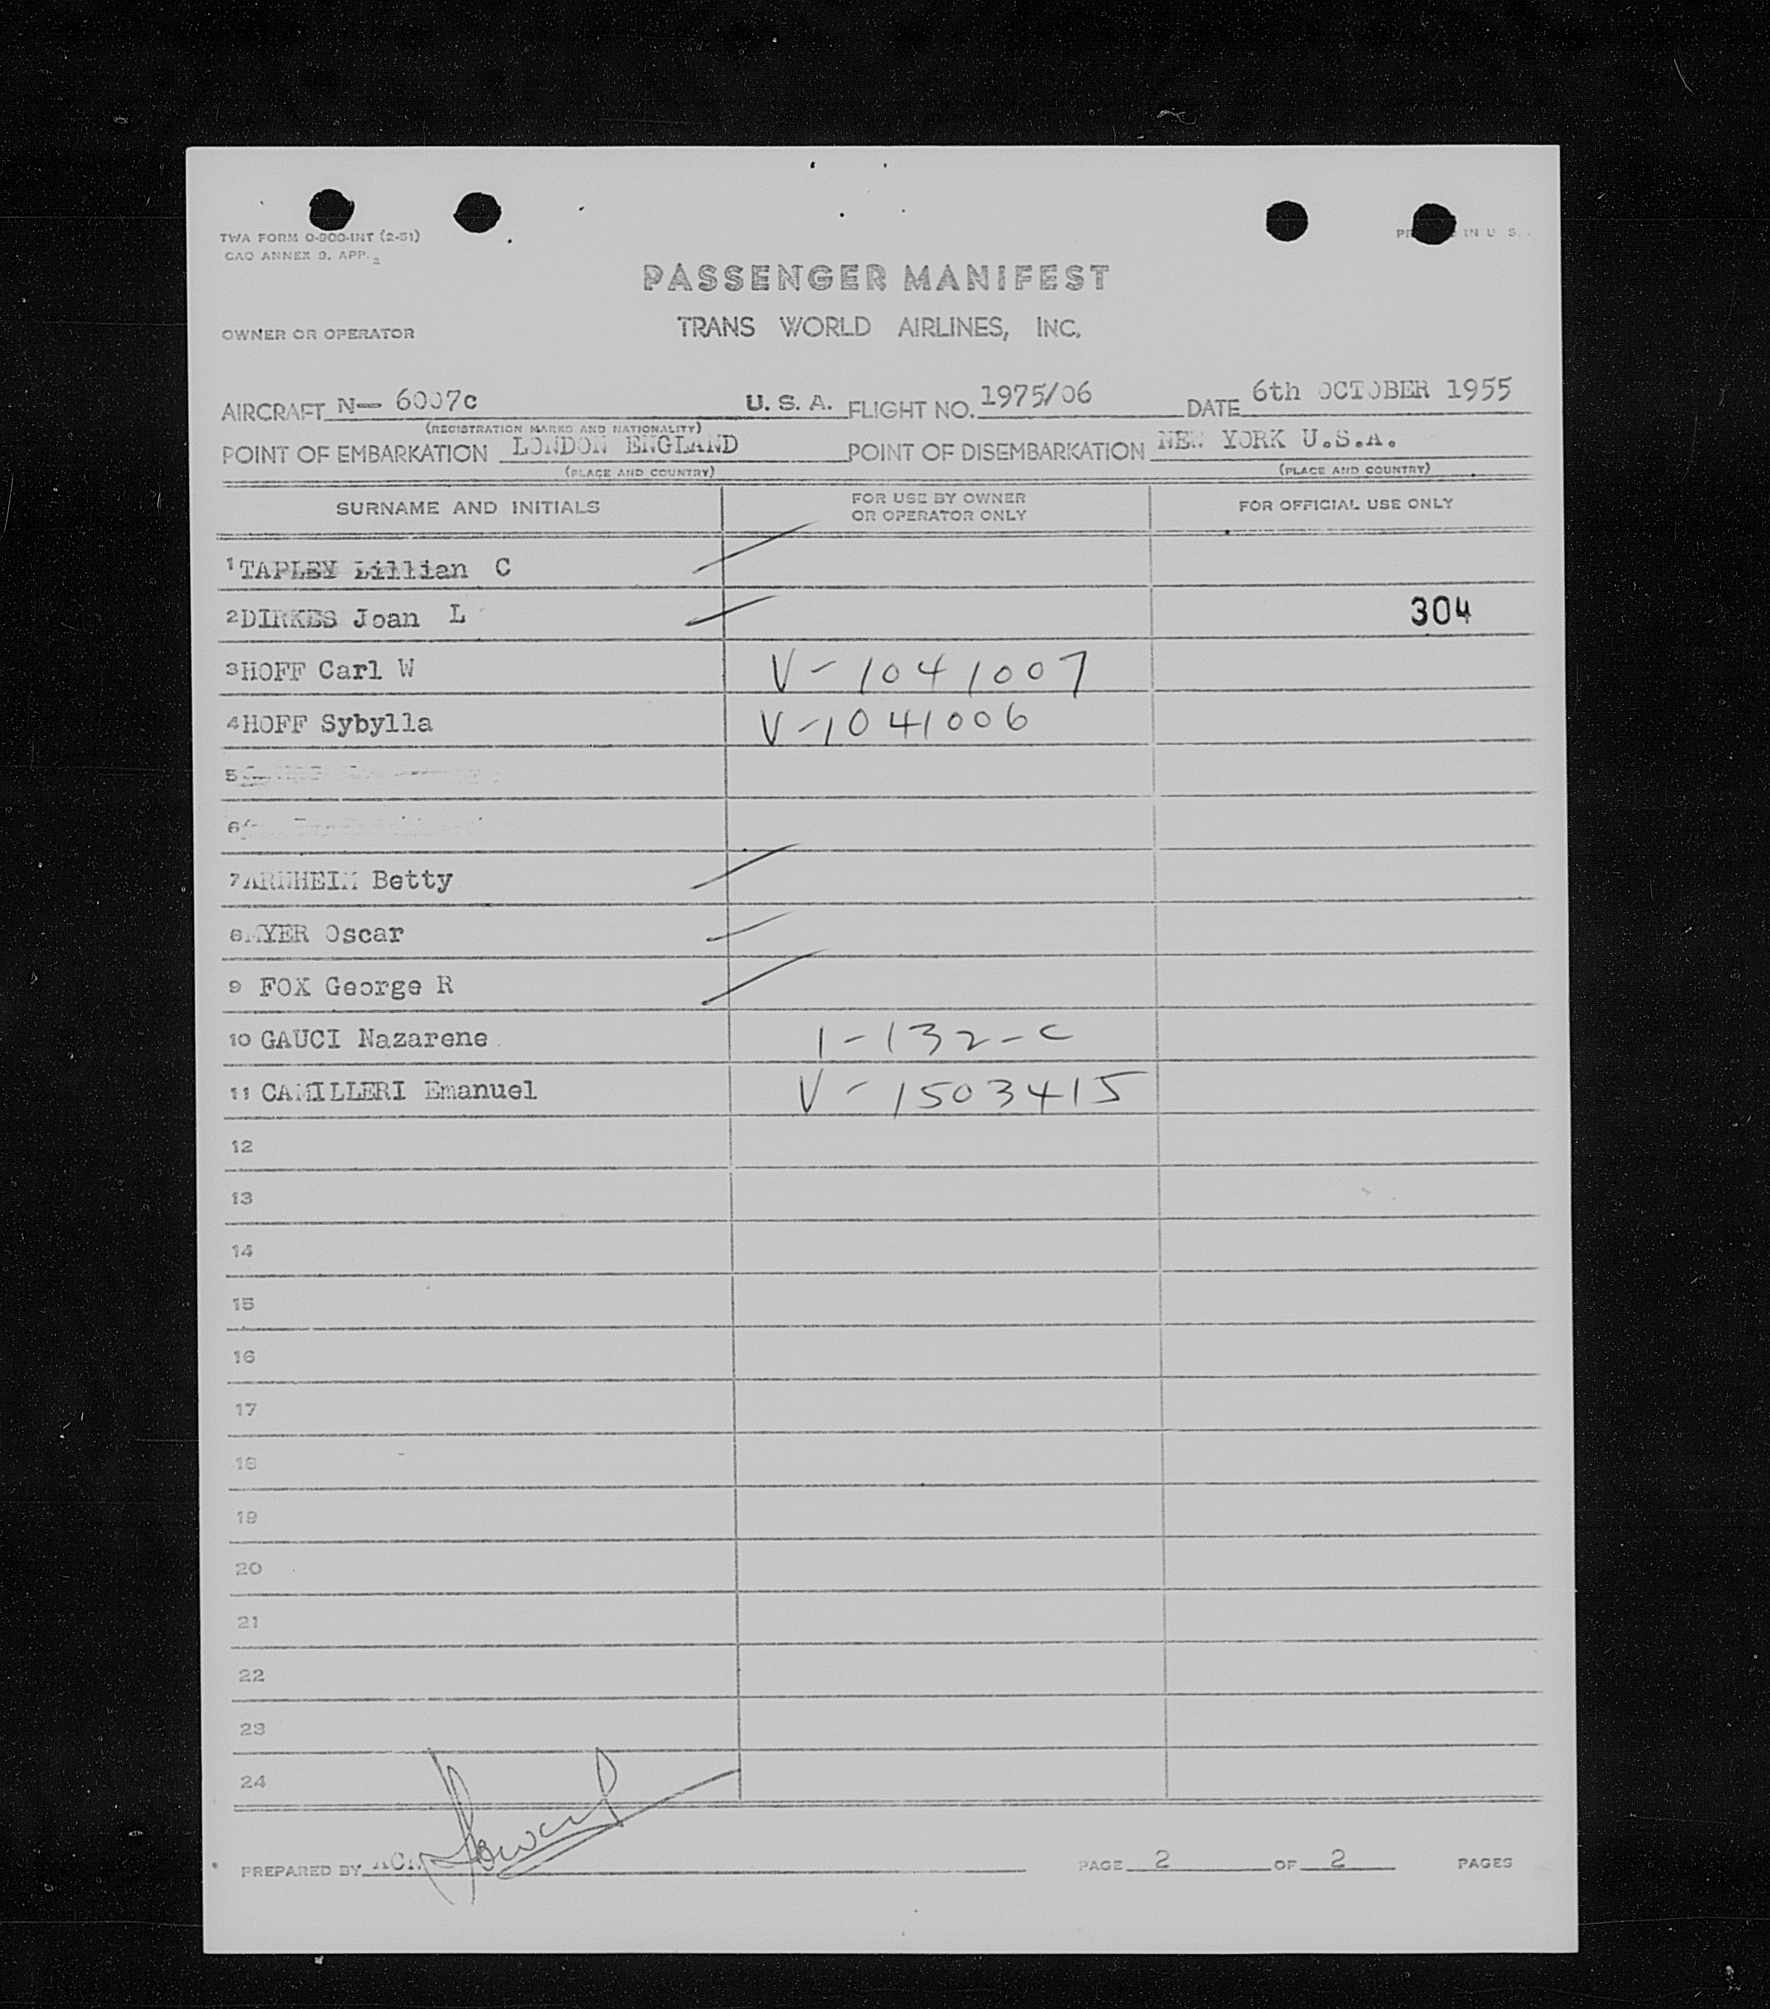 TWA FORM O-900-INT (2-51)
CAO ANNEX 9, APP. 2
IN U. S.
PASSENGER MANIFEST
OWNER OR OPERATOR
TRANS WORLD AIRLINES, INC.
AIRCRAFT N— 6007c U. S. A. FLIGHT NO. 1975/06 DATE 6th OCTOBER 1955
(REGISTRATION MARKS AND NATIONALITY)
POINT OF EMBARKATION LONDON ENGLAND POINT OF DISEMBARKATION NEW YORK U.S.A.
(PLACE AND COUNTRY) (PLACE AND COUNTRY)
SURNAME AND INITIALS FOR USE BY OWNER OR OPERATOR ONLY FOR OFFICIAL USE ONLY
1 TAPLEY Lillian C
2 DIRKES Joan L 304
3 HOFF Carl W V-1041007
4 HOFF Sybylla V-1041006
5
6
7 ARNHEIM Betty
8 Oscar
9 FOX George R
10 GAUCI Nazarene 1-132-C
11 CAMILLERI Emanuel V-1503415
12
13
14
15
16
17
18
19
20
21
22
23
24
PREPARED BY Howard PAGE 2 OF 2 PAGES